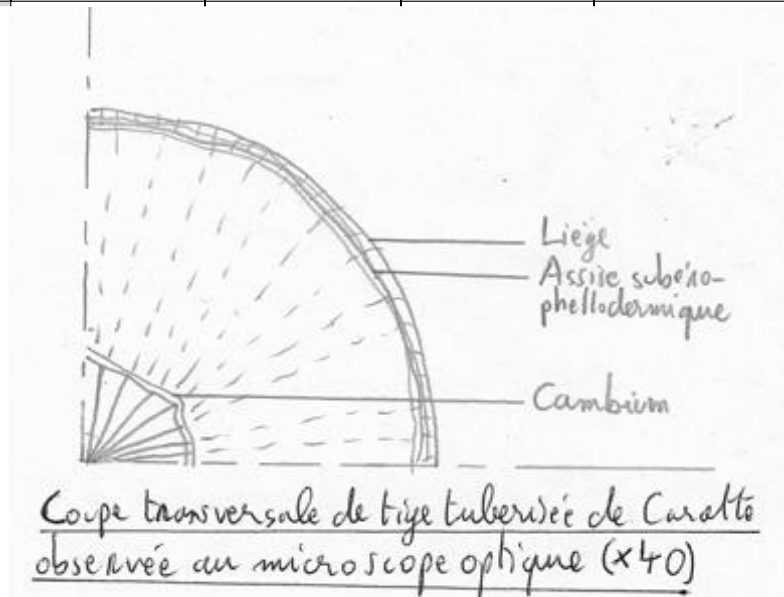 Liège
Assise subéro-
phellodermique
Cambium
Coupe transversale de tige tuberisée de Carotte
observée au microscope optique (×40)